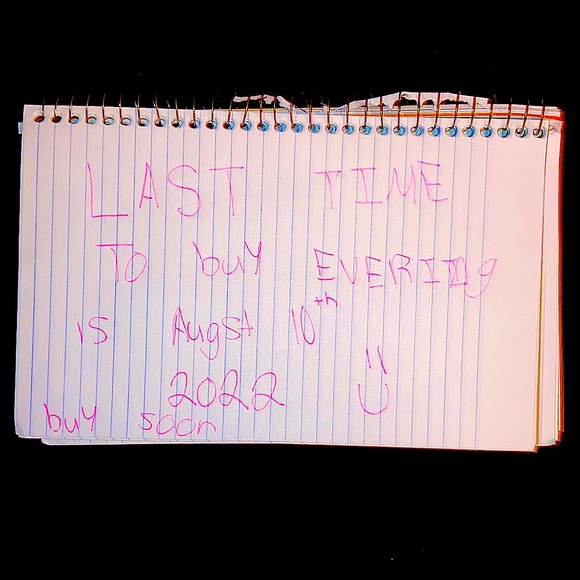 LAST TIME
TO buy EVERIING
is Augst 10th
2022
buy soon